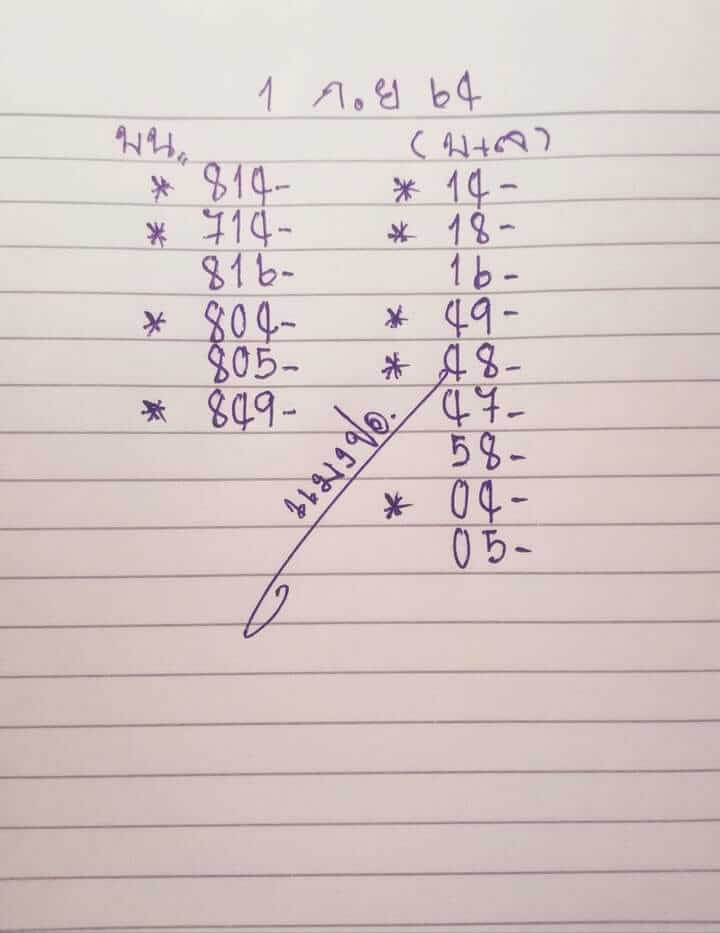 1 ก.ย 64
บน..
(บ+ล)
* 814-
* 14-
* 714-
* 18-
816-
16-
* 804-
* 49-
805-
* 48-
* 849-
47-
58-
* 04-
05-